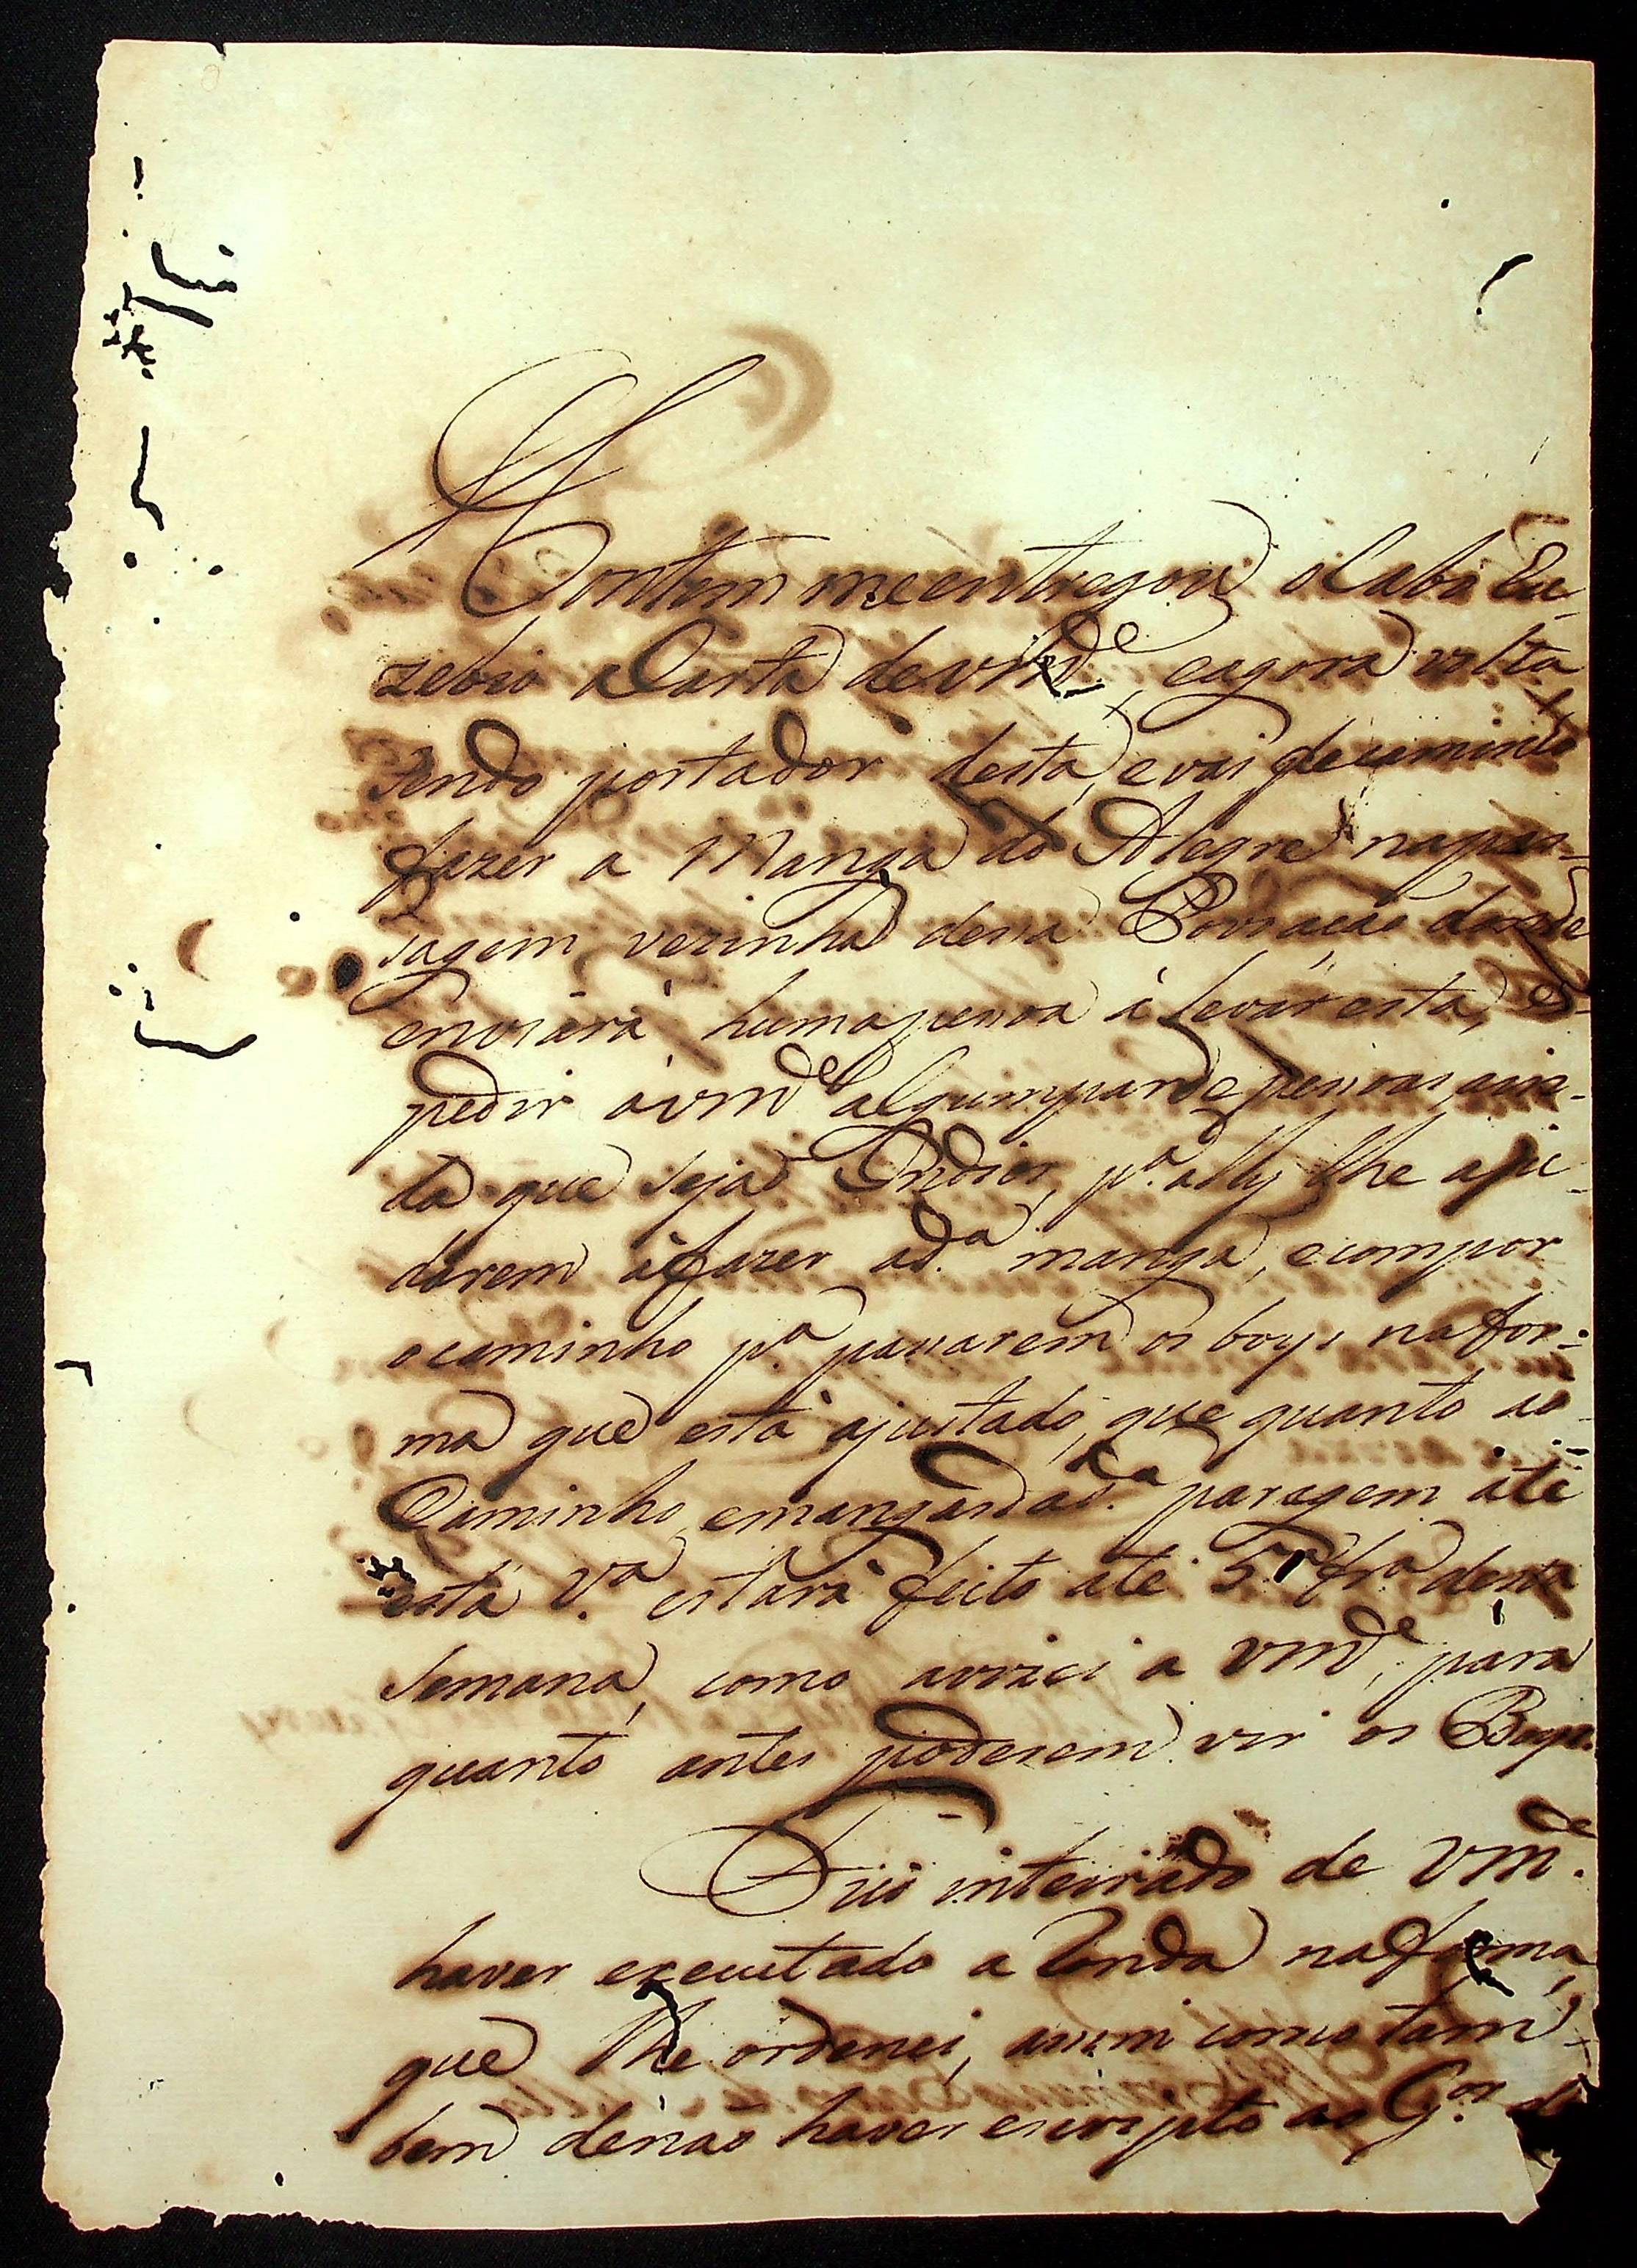 Hontem meentregou o Cabo Eu-
zebio a Carta deVmd.e, eagora volta
sendo portador desta, evai decaminho
fazer a Manga do Alegre napas-
sagem vezinha dessa Povoação donde
enviará humapessoa á levar esta, e
pedir ávmd.e algumparde pessoas, ain-
da que sejão Indios, p.a ally lhe aju-
darem áfazer ad.a manga, ecompor
ocaminho p.a passarem os boys nafor-
ma que está ajustado, que quanto ao
Caminho, emangasdad.a paragem até
esta V.a estará feito até 5.a fr.a desta
Semana, como avizei a Vmd.e, para
quanto antes poderem vir os Boys.
Fico inteirado de Vm.ce
haver executado a Ronda naforma,
que lhe ordenei, assim como tam-
bem denão haver escripto ao G.or do